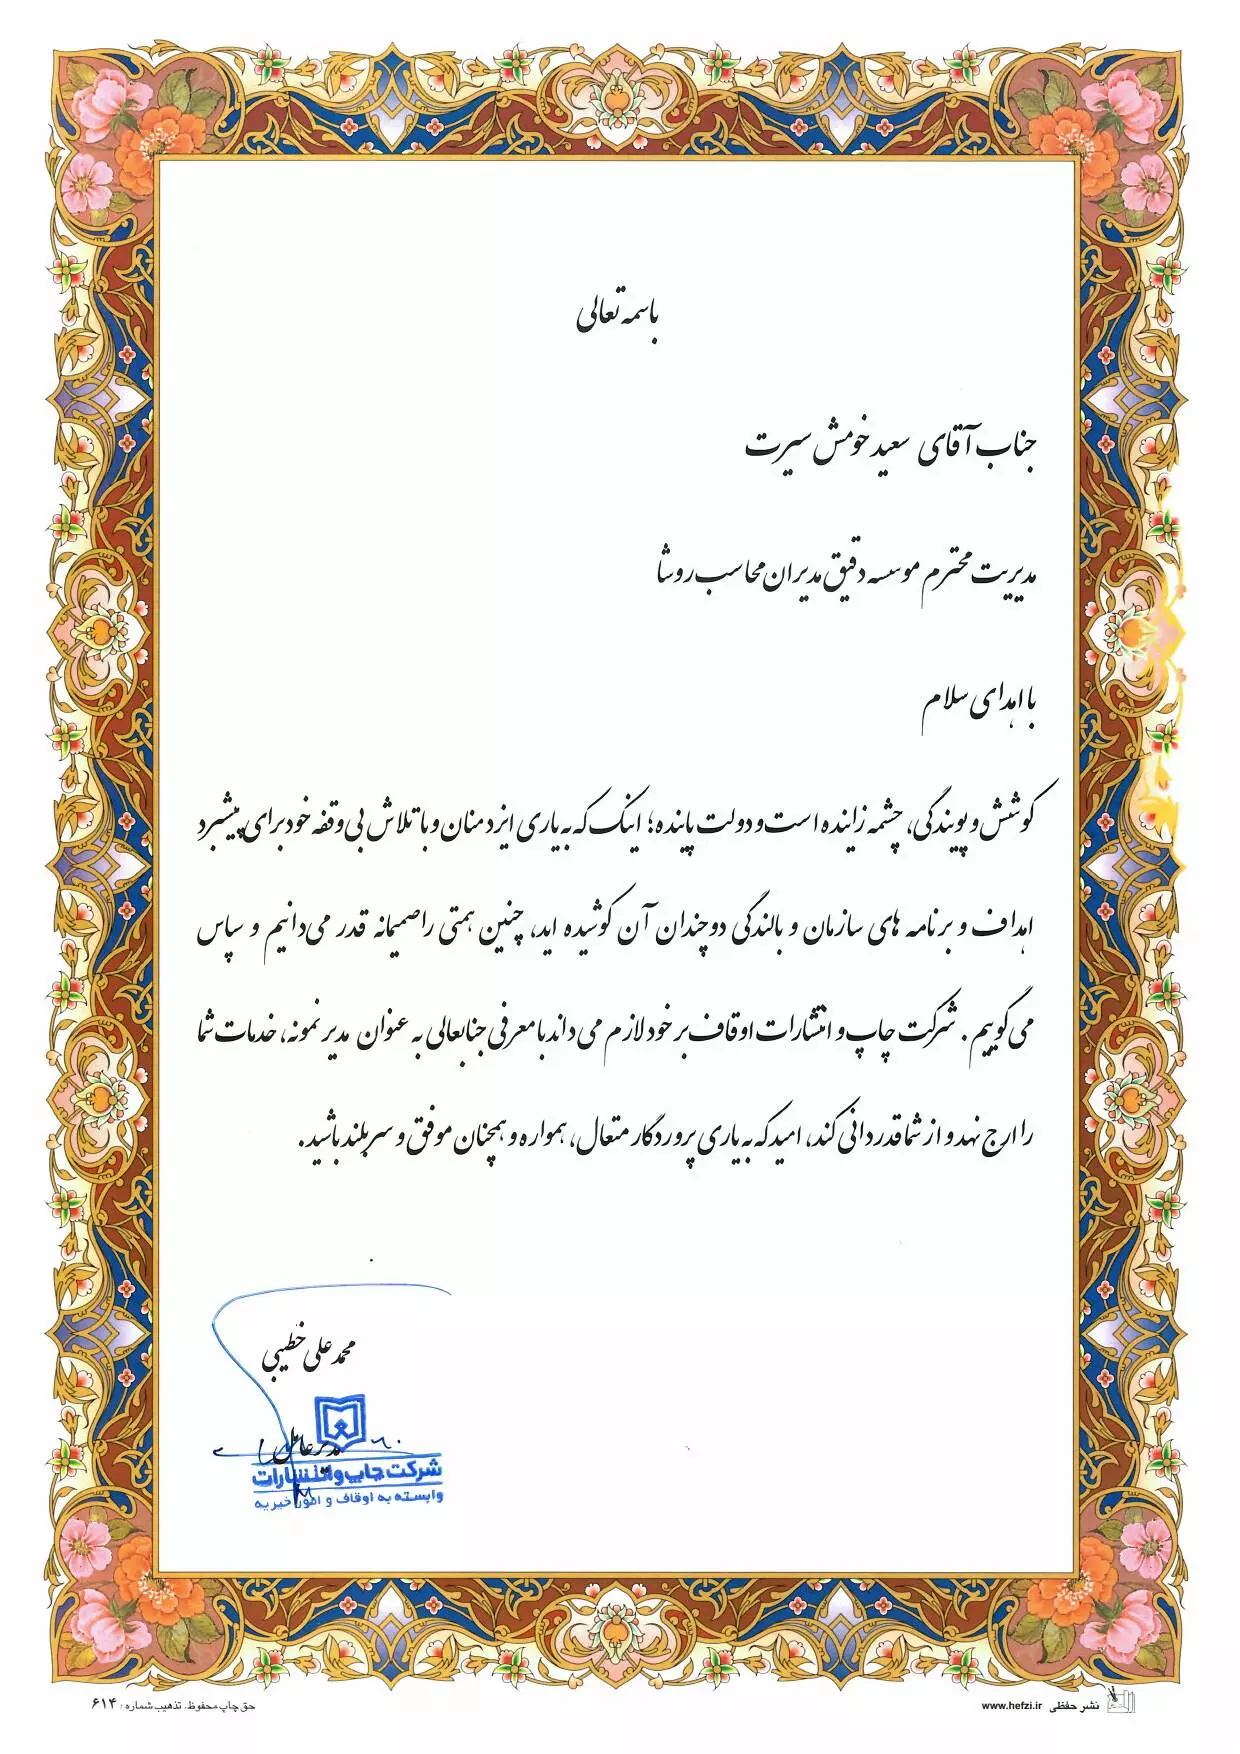 باسمه تعالی
جناب آقای سعید خومش سیرت
مدیریت محترم موسسه دقیق مدیران محاسب روشا
با اهدای سلام
کوشش و پویندگی، چشمه زاینده است و دولت پاینده؛ اینک که به یاری ایزد منان و با تلاش بی وقفه خود برای پیشبرد
اهداف و برنامه های سازمان و بالندگی دوچندان آن کوشیده اید، چنین همتی را صمیمانه قدر می دانیم و سپاس
می گوییم. شرکت چاپ و انتشارات اوقاف بر خود لازم می داند با معرفی جنابعالی به عنوان مدیر نمونه، خدمات شما
را ارج نهد و از شما قدردانی کند، امید که به یاری پروردگار متعال، همواره و همچنان موفق و سربلند باشید.
محمد علی خطیبی
مدیر عامل
شرکت چاپ و انتشارات
وابسته به اوقاف و امور خیریه
نشر حفظی www.hefzi.ir
حق چاپ محفوظ. تذهیب شماره: ۶۱۴